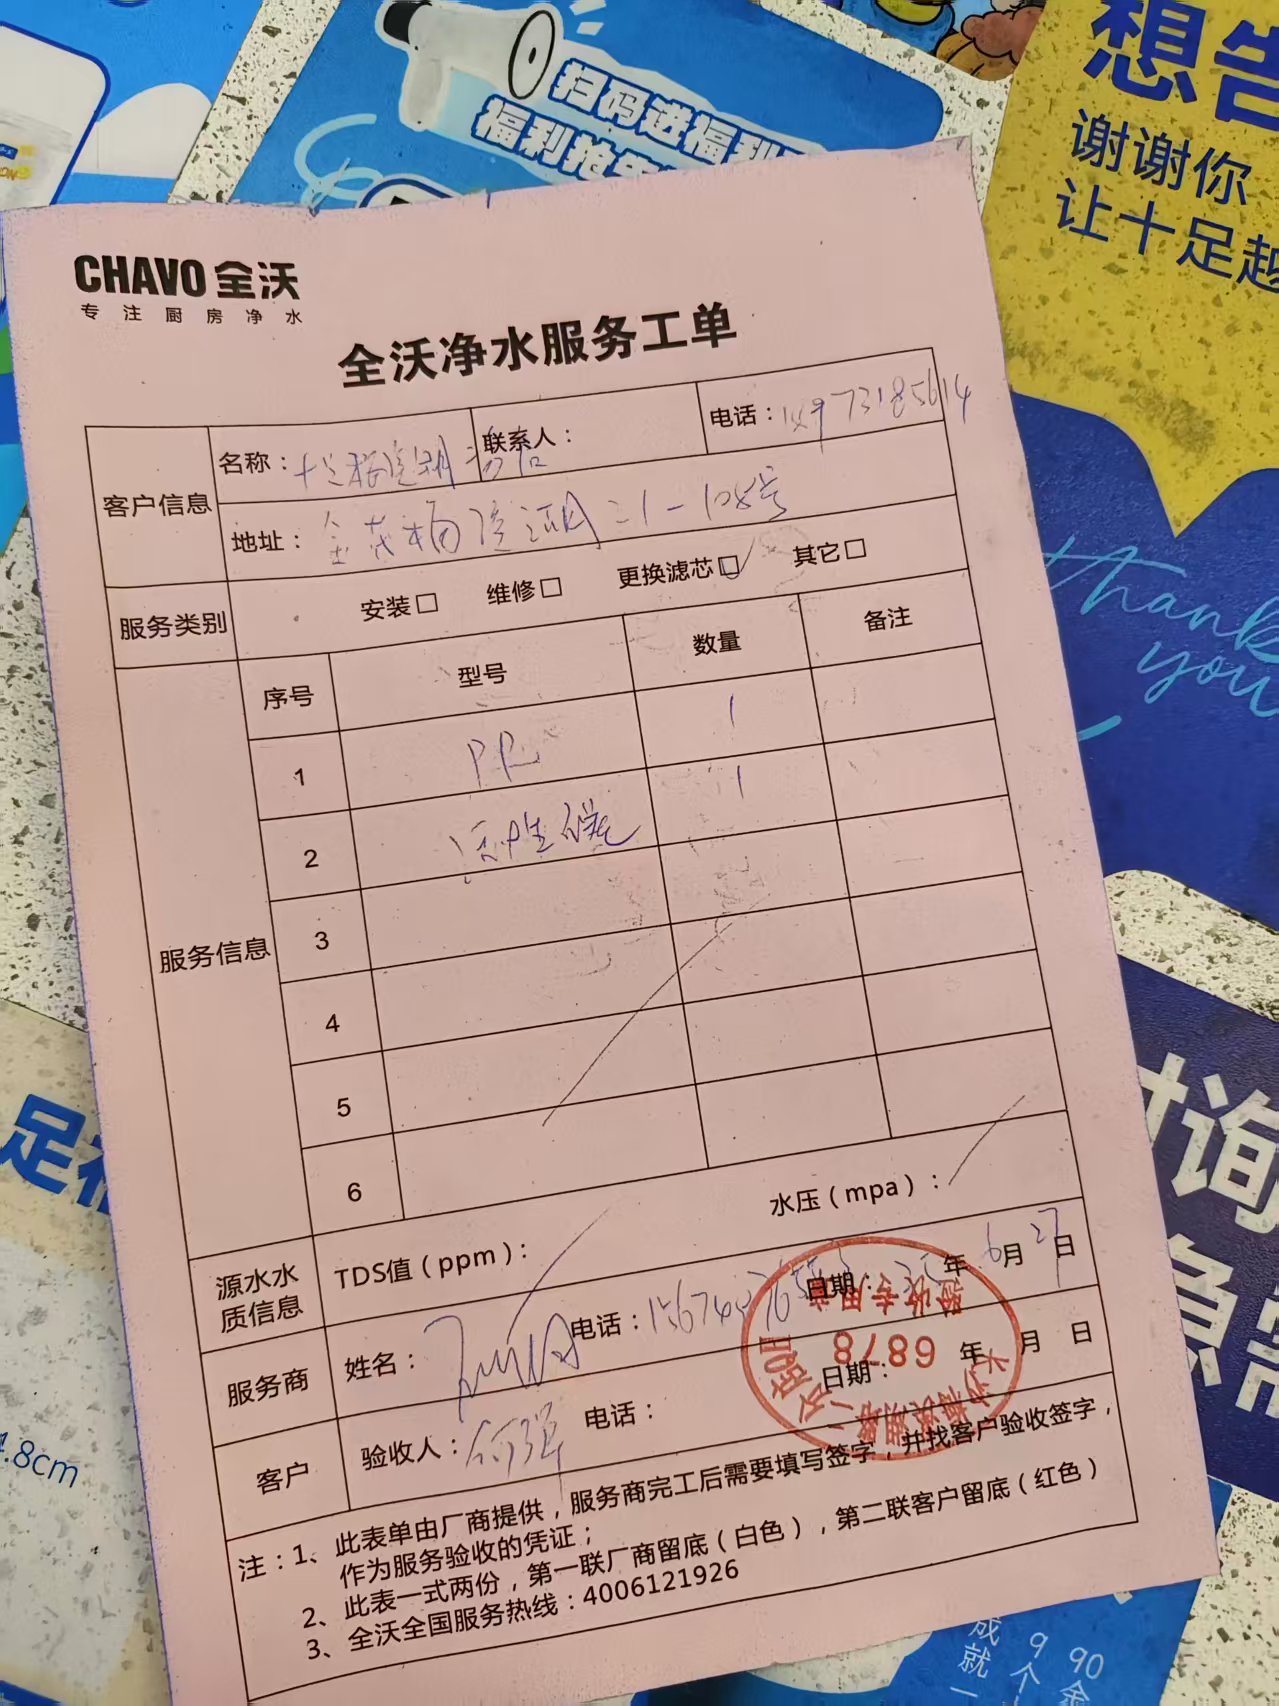 扫码进福利
福利抢
想告
谢谢你
让十足越
CHAVO 全沃
专注厨房净水
全沃净水服务工单
客户信息
名称：
联系人：
电话：
地址：
服务类别
安装□ 维修□ 更换滤芯□ 其它□
服务信息
序号 型号 数量 备注
1 PP 1
2 活性碳 1
3
4
5
6
源水水质信息
TDS值（ppm）：
水压（mpa）：
服务商
姓名：
电话：
日期： 年 6月 27日
客户
验收人：何强
电话：
日期： 年 月 日
6878
注：1、此表单由厂商提供，服务商完工后需要填写签字，并找客户验收签字，
作为服务验收的凭证；
2、此表一式两份，第一联厂商留底（白色），第二联客户留底（红色）
3、全沃全国服务热线：4006121926
thank
you
足
询
急需
.8cm
成就一
9个
90金